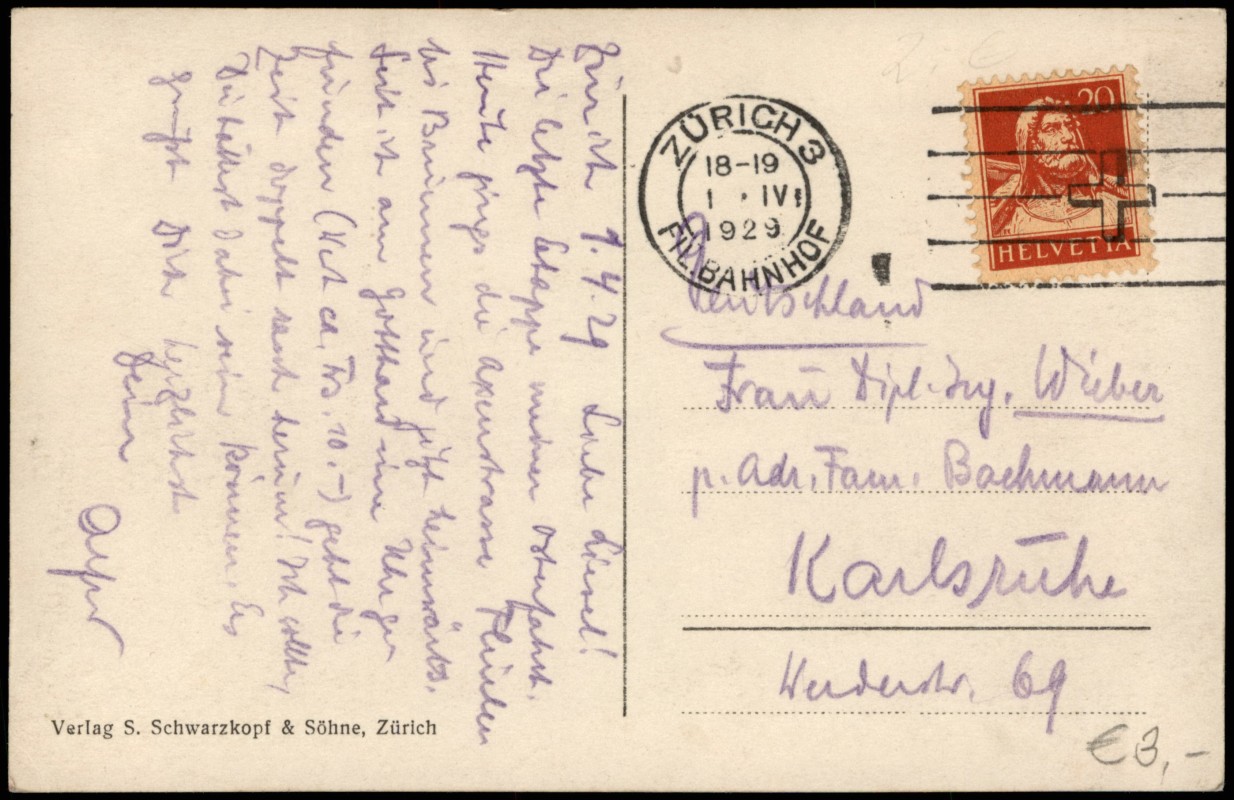 Zürich 1.4.29 Liebe Liesel!
Die letzte Etappe meiner Osterfahrt.
Heute gings die Axenstrasse Flüelen
bis Brunnen und jetzt heimwärts.
Seit ich am Gotthard eine Uhr gefunden
(Wert ca. Frs. 10.-) geht die
Zeit doppelt rasch herum! Ich wollte,
Du hättest dabei sein können. Es
grüßt Dich herzlichst
Dein
Verlag S. Schwarzkopf & Söhne, Zürich
ZÜRICH 3
18-19
1. IV
1929
FIL. BAHNHOF
20
HELVETIA
Deutschland
Frau Dipl.-Ing. Wieber
p. Adr. Fam. Bachmann
Karlsruhe
Werderstr. 69
€3,-